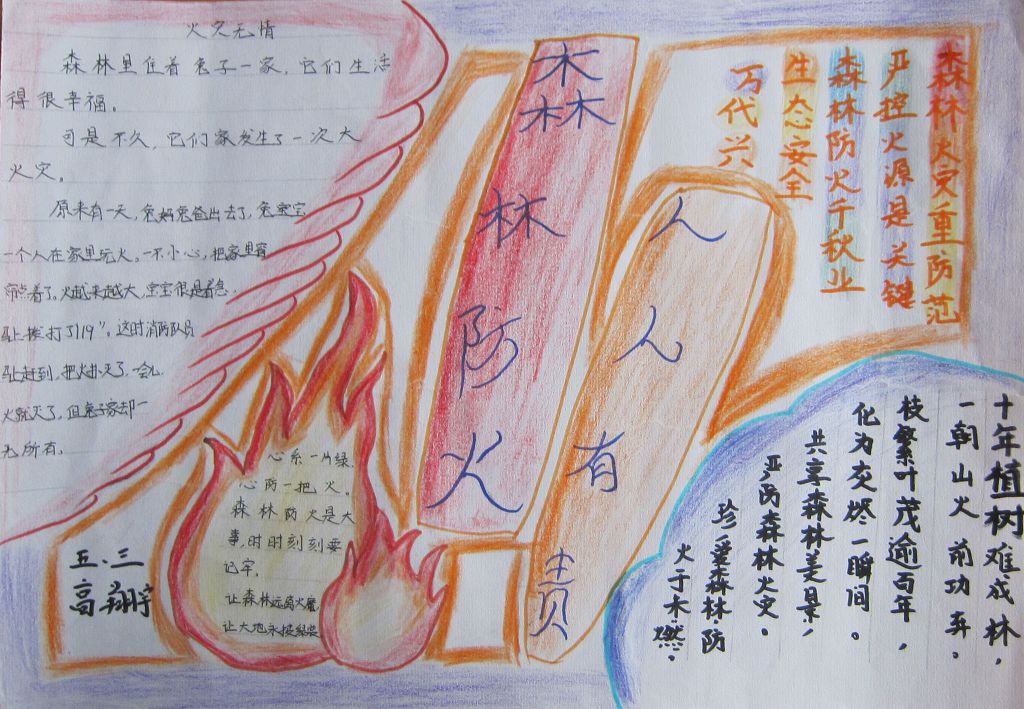 火灾无情
森林里住着兔子一家，它们生活
得很幸福。
可是不久，它们家发生了一次大
火灾。
原来有一天，兔妈兔爸出去了，兔宝宝
一个人在家里玩火。一不小心，把家里窗
帘点着了。火越来越大，宝宝很是着急
赶 打了119"。这时消防队员
赶赶到，把火扑灭了。一会儿
火就灭了，但兔子家却一
无所有。
森林防火
人人有责
森林火灾重防范
严控火源是关键
森林防火千秋业
生态安全
万代兴
心系一片绿，
心防一把火。
森林防火是大
事，时时刻刻要
记牢。
让森林远离火魔
让大地永披绿装
五、三
高翔宇
十年植树难成林，
一朝山火前功弃。
枝繁叶茂逾百年，
化为灰烬一瞬间。
共享森林美景，
严防森林火灾。
珍重森林，防
火于未燃。